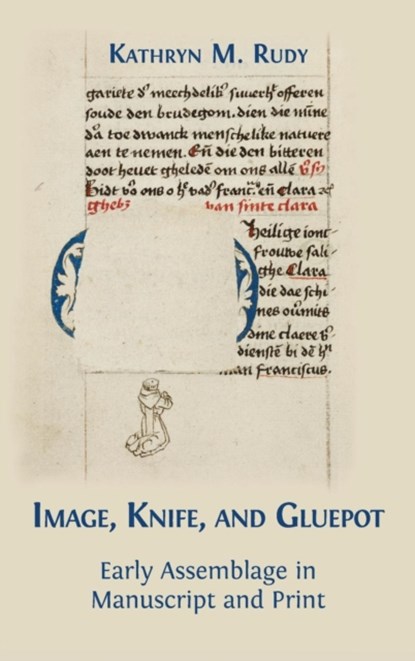 KATHRYN M. RUDY
offeren
soude den brudegom. dien die mīne
toe dwanck menschelike natuere
aen te nemen. Eñ die den bitteren
doot heuet gheledē om ons allē
Bidt vō ons o eñ Clara
van sinte clara
Heilige ionc-
frouwe sali-
ghe Clara
die dae schi-
nes oūmits
dine claere
dienstē bi dē
man franciscus.
IMAGE, KNIFE, AND GLUEPOT
Early Assemblage in
Manuscript and Print